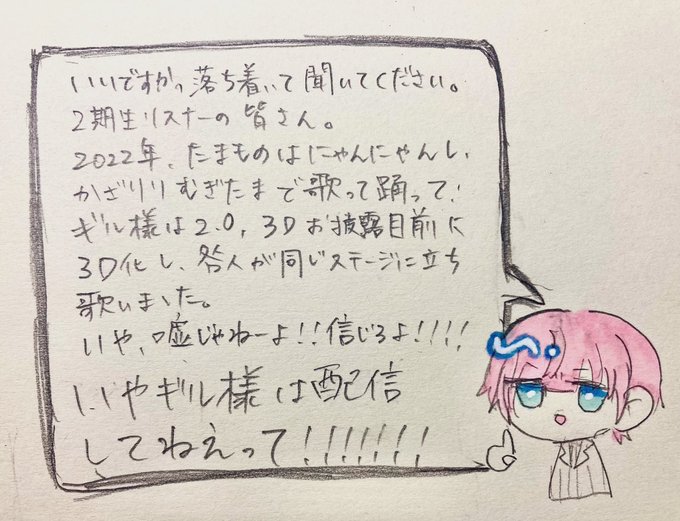 いいですかっ落ち着いて聞いてください。
2期生リスナーの皆さん。
2022年、たまものはにゃんにゃんし、
かざりりむぎたまで歌って踊って、
ギル様は2.0、3Dお披露目前に
3D化し、各人が同じステージに立ち
歌いました。
いや、嘘じゃねーよ!!信じろよ!!!!
いやギル様は配信
してねえって!!!!!!!